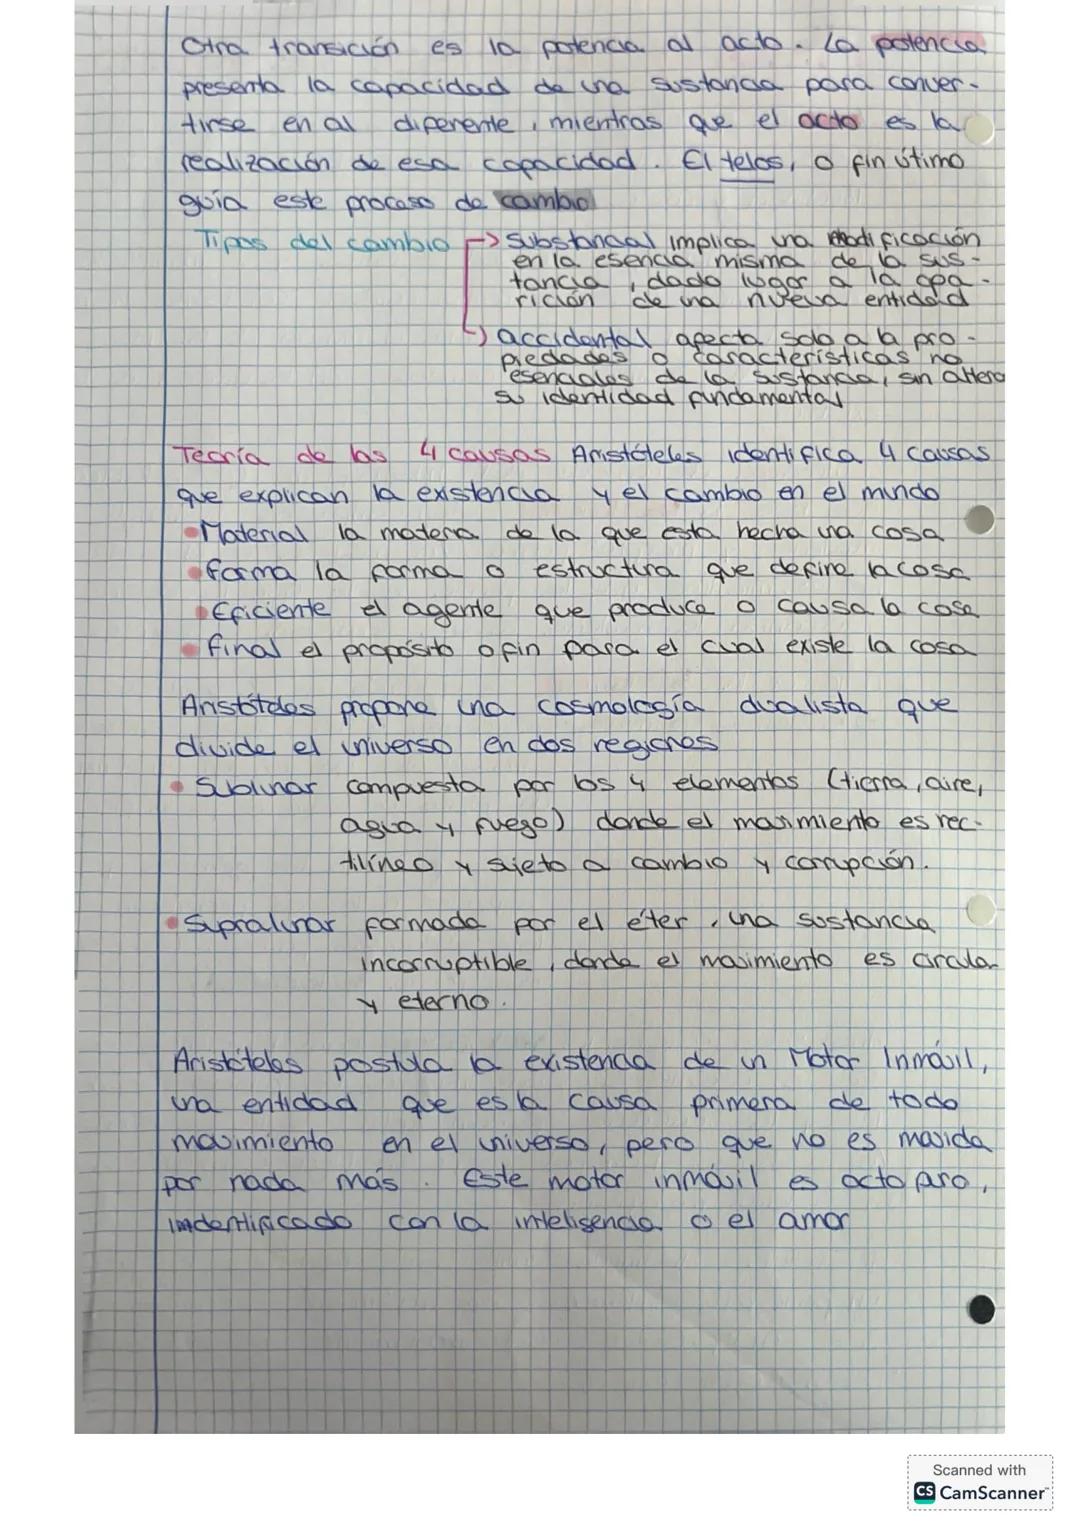 Otra transición es la potencia al acto. La potencia
presenta la capacidad de una sustancia para conver-
tirse en al diferente, mientras que el acto es la
realización de esa capacidad. El telos, o fin útimo
guía este proceso de cambio
Tipos del cambio → substancial implica una modificación
en la esencia misma de la sus-
tancia, dado lugar a la apa-
rición de una nueva entidad
→ accidental afecta solo a la pro-
piedades o características no
esenciales de la sustancia, sin altera
su identidad fundamental
Teoría de las 4 causas Aristóteles identifica 4 causas
que explican la existencia y el cambio en el mundo
• Material la materia de la que esta hecha una cosa
• forma la forma o estructura que define la cosa
• Eficiente el agente que produce o causa la cosa
• final el propósito o fin para el cual existe la cosa
Aristóteles propone una cosmología dualista que
divide el universo en dos regiones
• Sublunar compuesta por los 4 elementos (tierra, aire,
agua y fuego) donde el movimiento es rec-
tilíneo y sujeto a cambio y corrupción.
• Supralunar formada por el éter, una sustancia
incorruptible, donde el movimiento es circular
y eterno.
Aristóteles postula la existencia de un Motor Inmóvil,
una entidad que es la causa primera de todo
movimiento en el universo, pero que no es movida
por nada más. Este motor inmóvil es acto puro,
imdentificado con la inteligencia o el amor
Scanned with
CS CamScanner